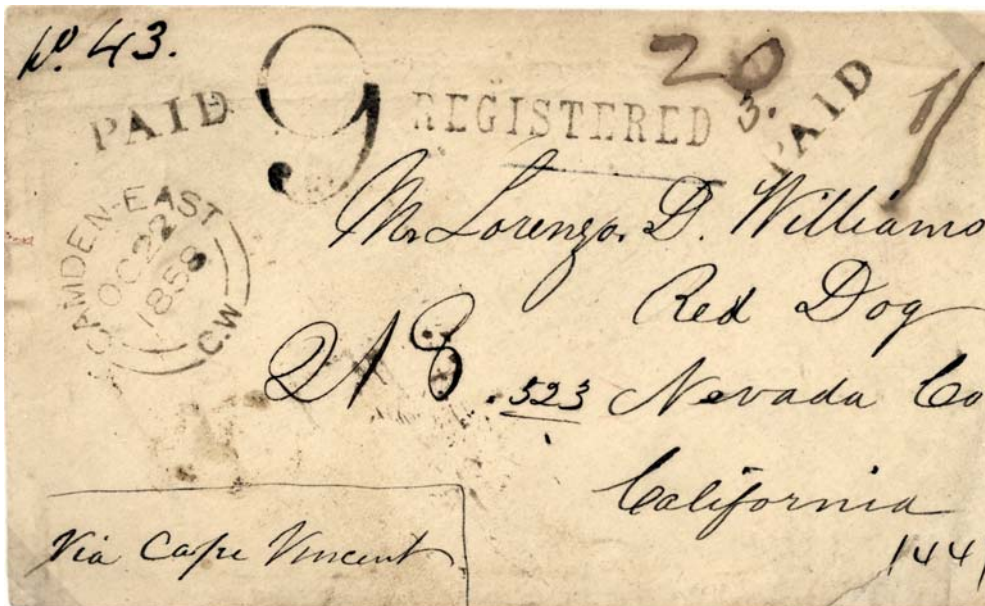 No. 43.
PAID 9 REGISTERED 3. 20 PAID 1/
CAMDEN-EAST
OC 22
1858
C.W
Mr Lorenzo. D. Williams
Red Dog
218 .523 Nevada Co
California
Via Cape Vincent
1441